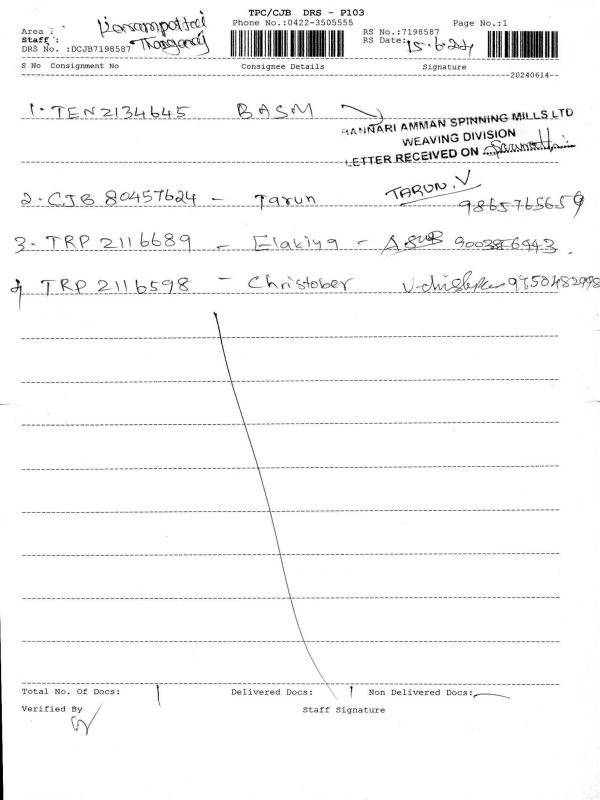 TPC/CJB DRS - P103
Area : Karampattai
Phone No.:0422-3505555
Page No.:1
Staff :
RS No.:7198587
DRS No. :DCJB7198587
RS Date: 15.6.24
S No Consignment No Consignee Details Signature
20240614
1. TEN2134645 BASM
BANNARI AMMAN SPINNING MILLS LTD
WEAVING DIVISION
LETTER RECEIVED ON
2. CJB 80457624 - Tarun TARUN.V
9865765659
3. TRP 2116689 - Elakiya -
4 TRP 2116598 - Christober
Total No. Of Docs: Delivered Docs: Non Delivered Docs:
Verified By Staff Signature